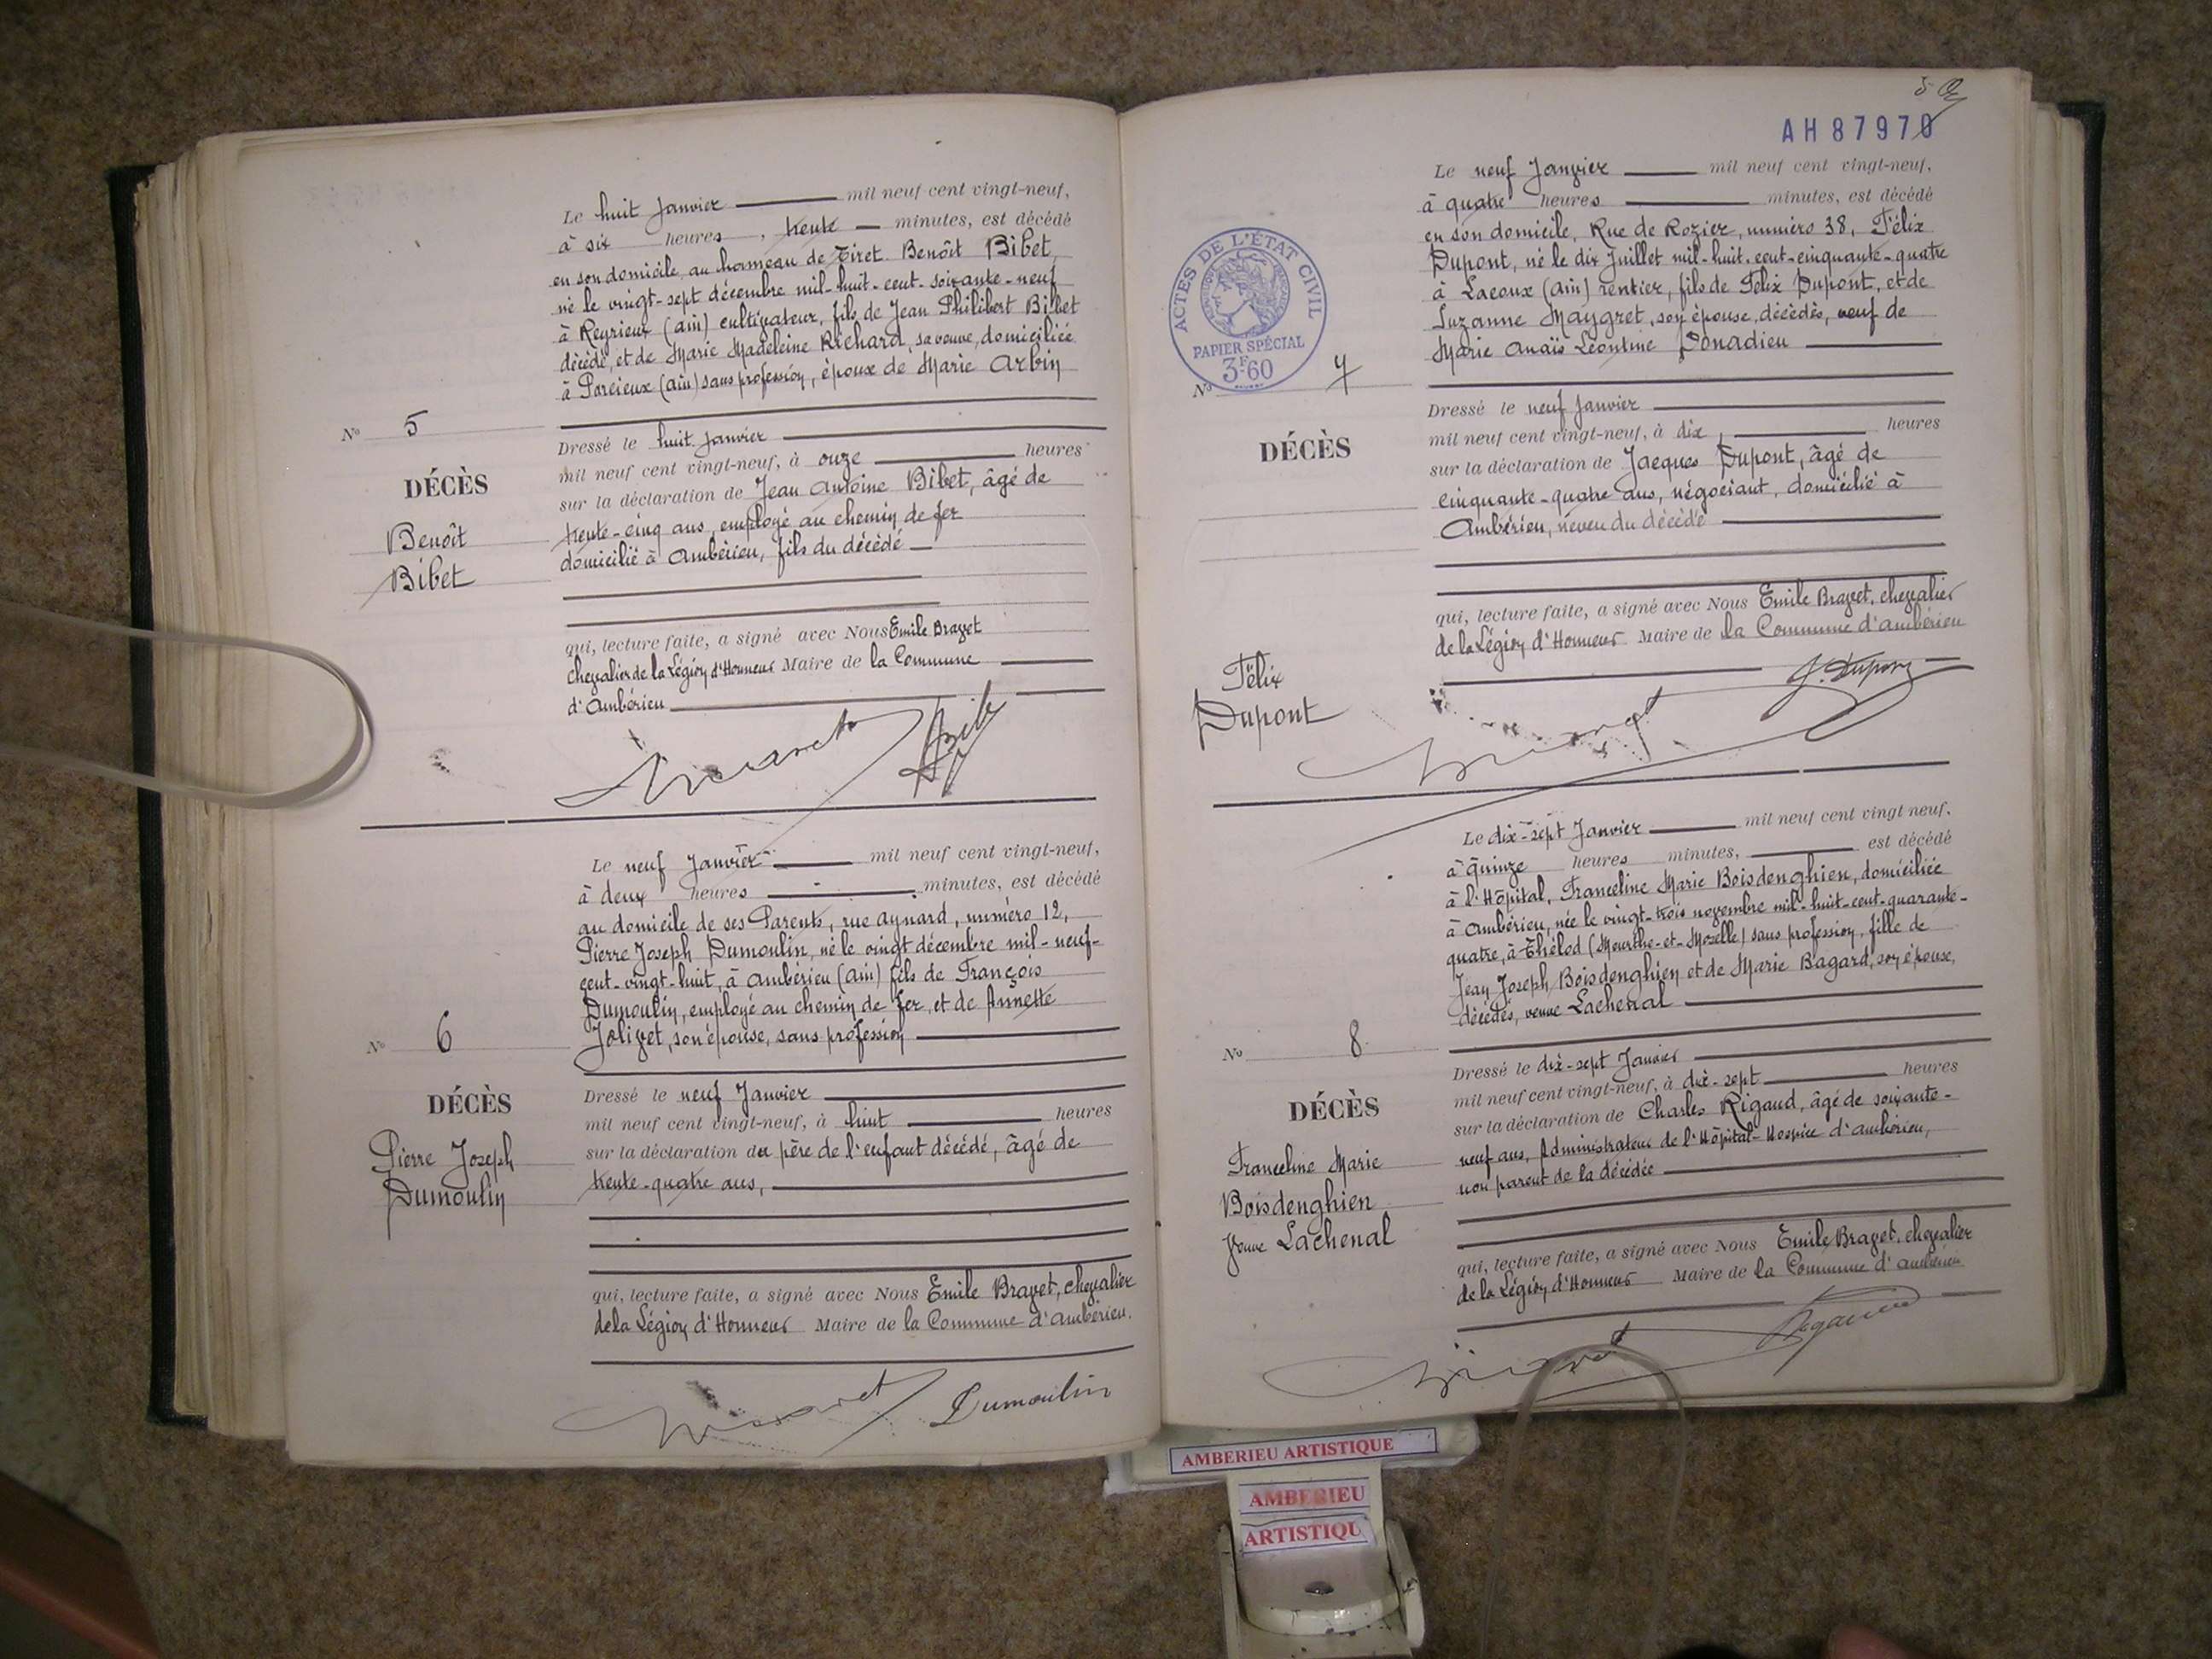 Le huit Janvier mil neuf cent vingt-neuf,
à six heures, trente minutes, est décédé
en son domicile au hameau de Tiret Benoît Bibet,
né le vingt-sept décembre mil-huit-cent-soixante-neuf
à Reyrieux (ain) cultivateur, fils de Jean Philibert Bibet
décédé, et de Marie Madeleine Richard, sa veuve, domiciliée
à Parcieux (ain) sans profession, époux de Marie Arbin
N° 5
DÉCÈS
Benoît
Bibet
Dressé le huit Janvier
mil neuf cent vingt-neuf, à onze heures
sur la déclaration de Jean Antoine Bibet, âgé de
trente-cinq ans, employé au chemin de fer
domicilié à Ambérieu, fils du décédé
qui, lecture faite, a signé avec Nous Emile Bravet
chevalier de la Légion d'Honneur Maire de la Commune
d'Ambérieu
Le neuf Janvier mil neuf cent vingt-neuf,
à deux heures minutes, est décédé
au domicile de ses Parents, rue Aynard, numéro 12,
Pierre Joseph Dumoulin, né le vingt décembre mil-neuf-
cent-vingt-huit, à Ambérieu (ain) fils de François
Dumoulin, employé au chemin de fer, et de Annette
Jolivet, son épouse, sans profession
N° 6
DÉCÈS
Pierre Joseph
Dumoulin
Dressé le neuf Janvier
mil neuf cent vingt-neuf, à huit heures
sur la déclaration du père de l'enfant décédé, âgé de
trente-quatre ans,
qui, lecture faite, a signé avec Nous Emile Bravet, chevalier
de la Légion d'Honneur Maire de la Commune d'Ambérieu.
Dumoulin
5
AH 87970
Le neuf Janvier mil neuf cent vingt-neuf,
à quatre heures minutes, est décédé
en son domicile, Rue de Rozier, numéro 38, Félix
Dupont, né le dix Juillet mil-huit-cent-cinquante-quatre
à Lacoux (ain) rentier, fils de Félix Dupont, et de
Suzanne Maygret, son épouse, décédés, veuf de
Marie Anaïs Léontine Donadieu
ACTES DE L'ÉTAT CIVIL
PAPIER SPÉCIAL
3F.60
N° 7
DÉCÈS
Félix
Dupont
Dressé le neuf Janvier
mil neuf cent vingt-neuf, à dix heures
sur la déclaration de Jacques Dupont, âgé de
cinquante-quatre ans, négociant, domicilié à
Ambérieu, neveu du décédé
qui, lecture faite, a signé avec Nous Emile Bravet, chevalier
de la Légion d'Honneur Maire de la Commune d'Ambérieu
J. Dupont
Le dix-sept Janvier mil neuf cent vingt neuf,
à quinze heures minutes, est décédé
à l'Hôpital, Franceline Marie Boisdenghien, domiciliée
à Ambérieu, née le vingt-trois novembre mil-huit-cent-quarante-
quatre, à Thélod (Meurthe-et-Moselle) sans profession, fille de
Jean Joseph Boisdenghien et de Marie Bagard, son épouse,
décédés, veuve Lachenal
N° 8
DÉCÈS
Franceline Marie
Boisdenghien
Veuve Lachenal
Dressé le dix-sept Janvier
mil neuf cent vingt-neuf, à dix-sept heures
sur la déclaration de Charles Rigaud, âgé de soixante-
neuf ans, Administrateur de l'Hôpital-Hospice d'Ambérieu,
non parent de la décédée
qui, lecture faite, a signé avec Nous Emile Bravet, chevalier
de la Légion d'Honneur Maire de la Commune d'Ambérieu
AMBERIEU ARTISTIQUE
AMBERIEU
ARTISTIQU